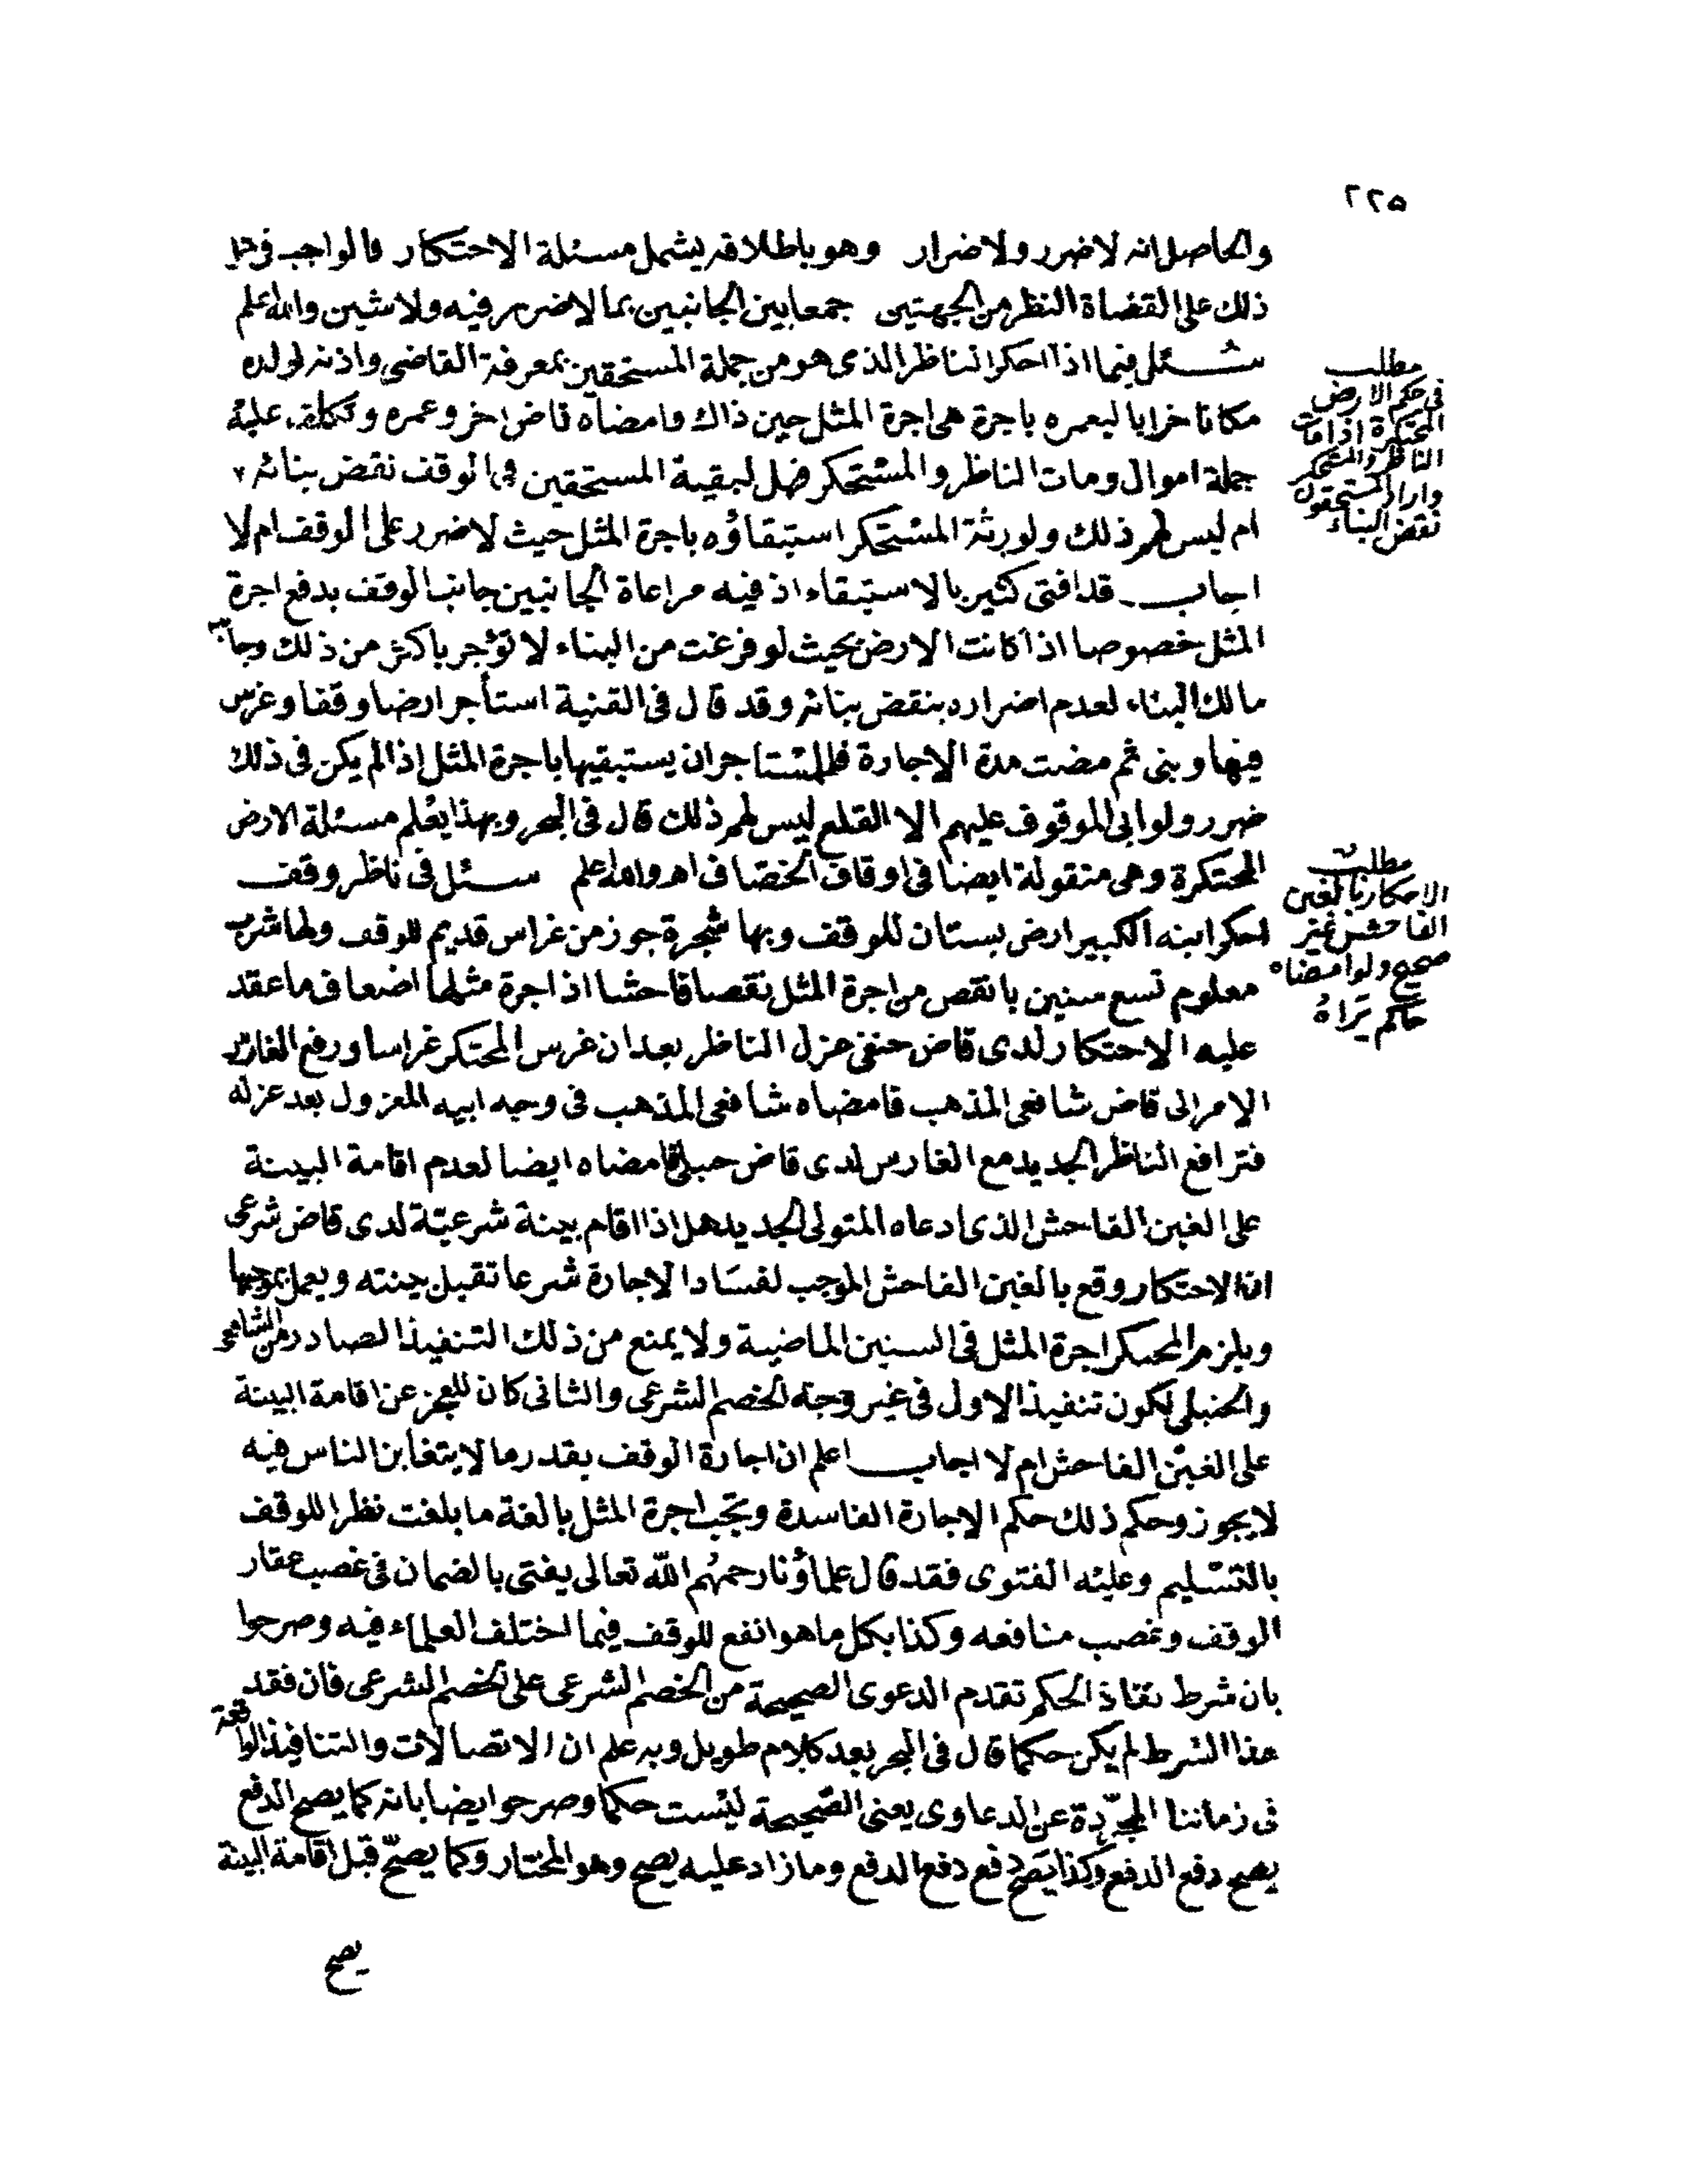 ٢٢٥
والحاصل انه لا ضرر ولا ضرار وهو باطلاقه يشمل مسئلة الاحتكار فالواجب في مثل
ذلك على القضاة النظر من الجهتين جمعا بين الجانبين بما لا ضرر فيه ولا شين والله اعلم
سئل فيما اذا احكر الناظر الذى هو من جملة المستحقين بمعرفة القاضى واذنه لولده
مكانا خرابا ليعمره باجرة هى اجرة المثل حين ذاك وامضاه قاض اخر وعمره وتكلف عليه
جملة اموال ومات الناظر والمستحكر فهل لبقية المستحقين فى الوقف نقض بنائه
ام ليس لهم ذلك ولورثة المستحكر استبقاؤه باجرة المثل حيث لا ضرر على الوقف ام لا
اجاب قد افتى كثير بالاستبقاء اذ فيه مراعاة الجانبين جانب الوقف بدفع اجرة
المثل خصوصا اذا كانت الارض بحيث لو فرغت من البناء لا تؤجر باكثر من ذلك وجانب
مالك البناء لعدم اضراره بنقض بنائه وقد قال فى القنية استأجر ارضا وقفا وغرس
فيها وبنى ثم مضت مدة الاجارة فللمستاجر ان يستبقيها باجرة المثل اذا لم يكن فى ذلك
ضرر ولو ابى الموقوف عليهم الا القلع ليس لهم ذلك قال فى البحر وبهذا يعلم مسئلة الارض
المحتكرة وهى منقولة ايضا فى اوقاف الخصاف اهـ والله اعلم سئل فى ناظر وقف
احكر ابنه الكبير ارض بستان للوقف وبها شجرة جوز من غراس قديم للوقف ولها شرب
معلوم تسع سنين بانقص من اجرة المثل نقصا فاحشا اذ اجرة مثلها اضعاف ما عقد
عليه الاحتكار لدى قاض حنفى عزل الناظر بعد ان غرس المحتكر غراسا ورفع الغارس
الامر الى قاض شافعى المذهب فامضاه شافعى المذهب فى وجه ابيه المعزول بعد عزله
فترافع الناظر الجديد مع الغارس لدى قاض حنبلى فامضاه ايضا لعدم اقامة البينة
على الغبن الفاحش الذى ادعاه المتولى الجديد هل اذا اقام بينة شرعية لدى قاض شرعى
ان الاحتكار وقع بالغبن الفاحش الموجب لفساد الاجارة شرعا تقبل بينته ويعمل بموجبها
ويلزم المحتكر اجرة المثل فى السنين الماضية ولا يمنع من ذلك التنفيذ الصادر من الشافعى
والحنبلى لكون تنفيذ الاول فى غير وجه الخصم الشرعى والثانى كان للعجز عن اقامة البينة
على الغبن الفاحش ام لا اجاب اعلم ان اجارة الوقف بقدر ما لا يتغابن الناس فيه
لا يجوز وحكم ذلك حكم الاجارة الفاسدة وتجب اجرة المثل بالغة ما بلغت نظرا للوقف
بالتسليم وعليه الفتوى فقد قال علماؤنا رحمهم الله تعالى يفتى بالضمان فى غصب عقار
الوقف وغصب منافعه وكذا بكل ما هو انفع للوقف فيما اختلف العلماء فيه وصرحوا
بان شرط نفاذ الحكم تقدم الدعوى الصحيحة من الخصم الشرعى على الخصم الشرعى فان فقد
هذا الشرط لم يكن حكما قال فى البحر بعد كلام طويل وبه علم ان الاتصالات والتنافيذ الواقعة
فى زماننا المجردة عن الدعاوى يعنى الصحيحة ليست حكما وصرحوا ايضا بانه كما يصح الدفع
يصح دفع الدفع وكذا يصح دفع دفع الدفع وما زاد عليه يصح وهو المختار وكما يصح قبل اقامة البينة
يصح
مطلب
فى حكم الارض
المحتكرة اذا مات
الناظر والمستحكر
واراد المستحقون
نقض البناء
مطلب
الاحكار بالغبن
الفاحش غير
صحيح ولو امضاه
حاكم يراه